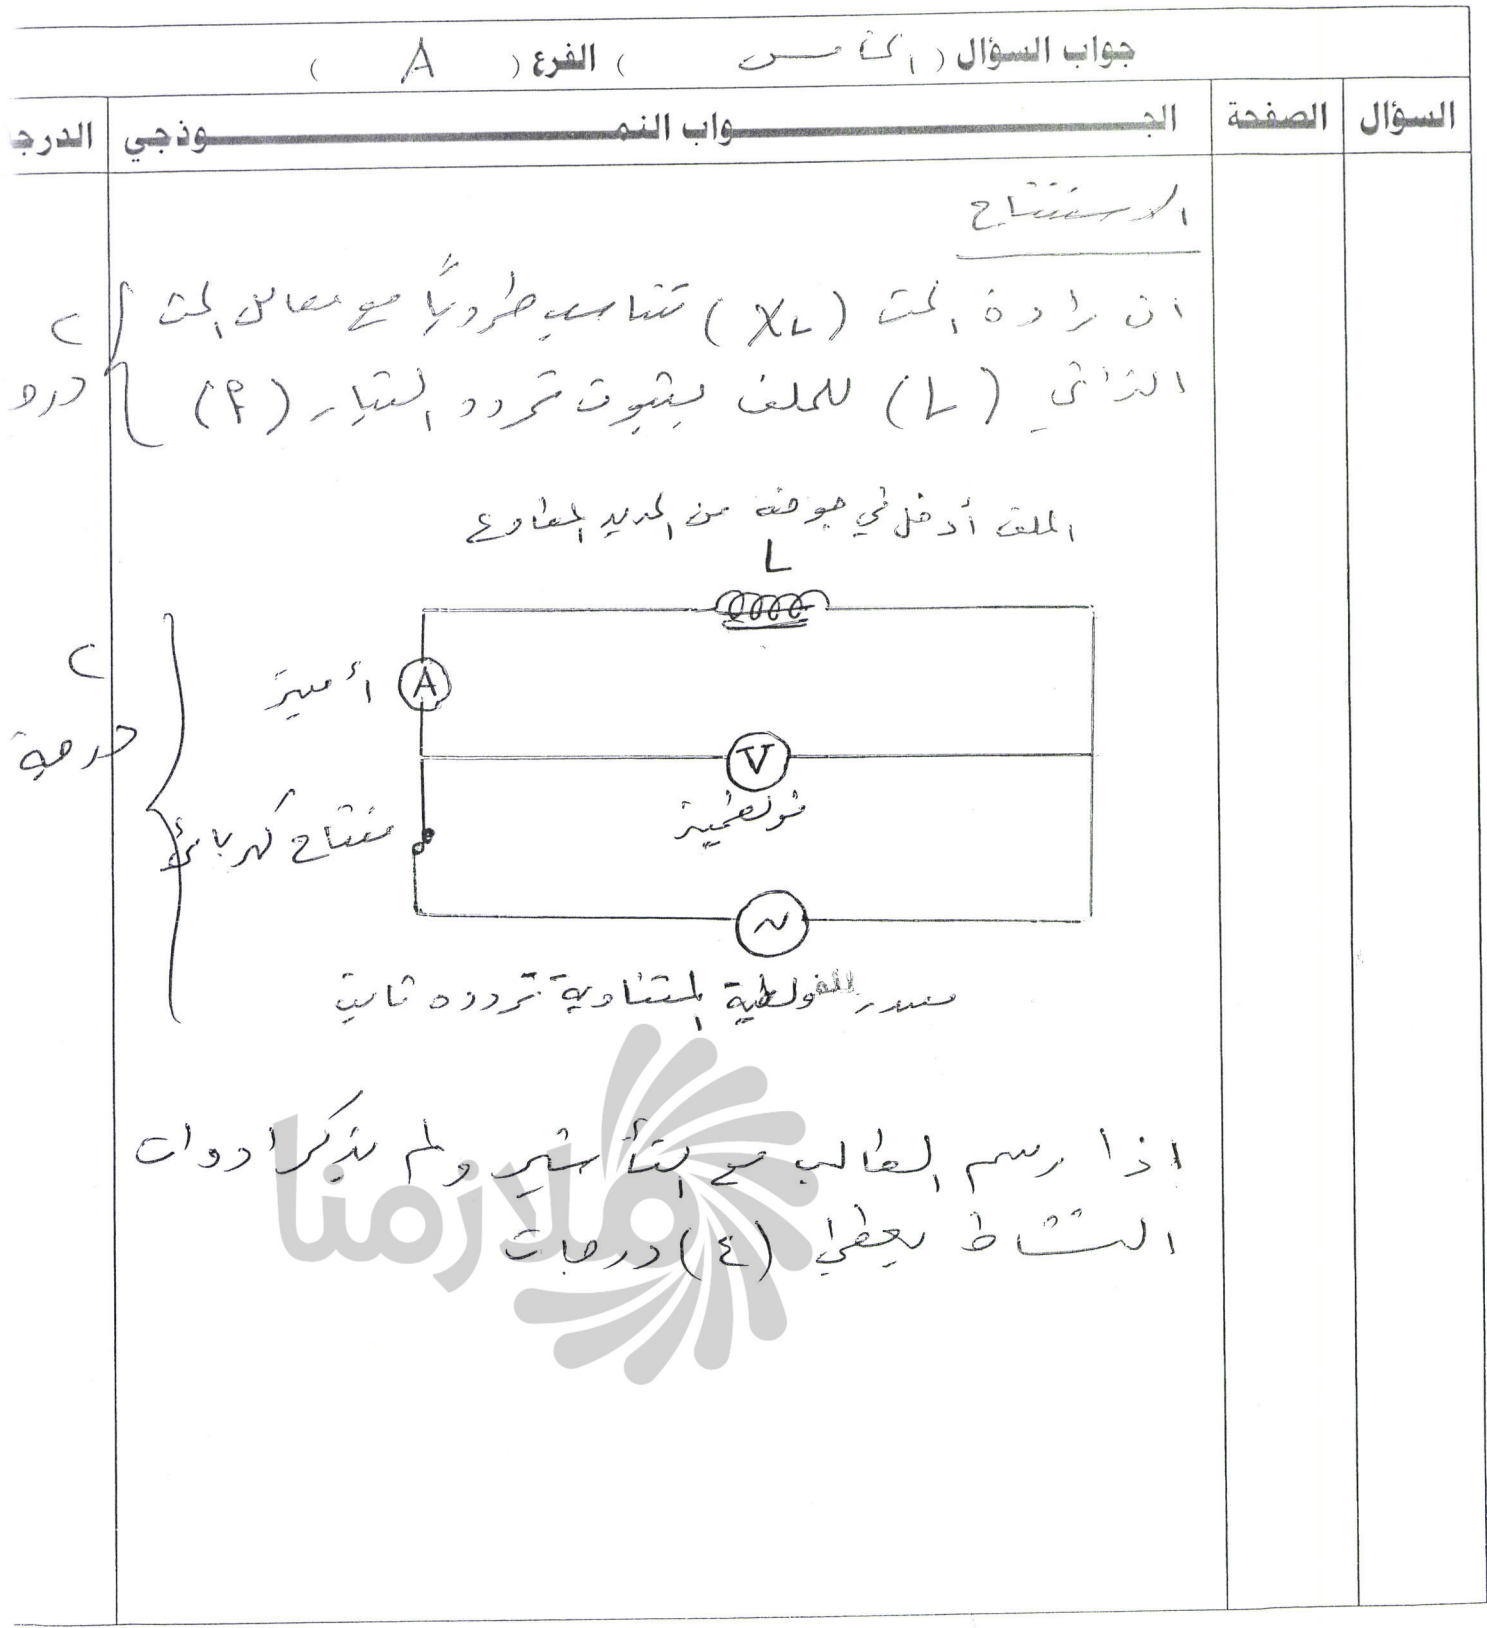 جواب السؤال ( الخامس ) الفرع ( A )
السؤال
الصفحة
الجواب النموذجي
الدرج
الاستنتاج
ان رادة الحث (XL) تتناسب طردياً مع معامل الحث
٢
الذاتي (L) للملف بثبوت تردد التيار (f)
درج
الملف أدخل في جوفه من الحديد المطاوع
L
٢
درجة
A
أميتر
V
فولطميتر
مفتاح كهربائي
~
مصدر للفولطية المتناوبة تردده ثابت
اذا رسم الطالب مع التأشير ولم يذكر ادوات
النشاط يعطى (٤) درجات
ملازمنا